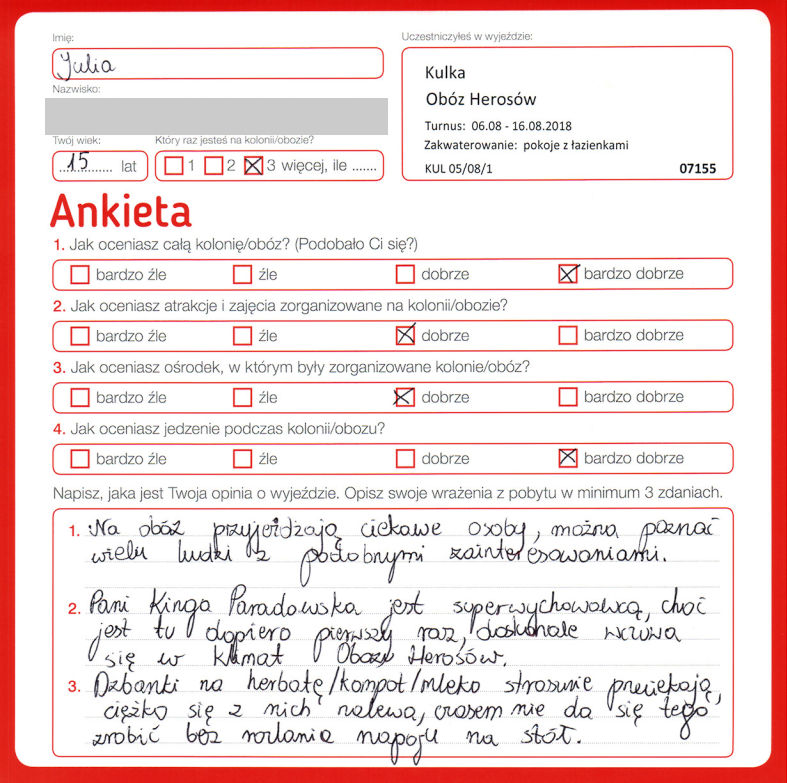 Imię:
Julia
Nazwisko:
Twój wiek:
15 lat
Który raz jesteś na kolonii/obozie?
1 2 3 więcej, ile .......
Uczestniczyłeś w wyjeździe:
Kulka
Obóz Herosów
Turnus: 06.08 - 16.08.2018
Zakwaterowanie: pokoje z łazienkami
KUL 05/08/1 07155
Ankieta
1. Jak oceniasz całą kolonię/obóz? (Podobało Ci się?)
bardzo źle źle dobrze bardzo dobrze
2. Jak oceniasz atrakcje i zajęcia zorganizowane na kolonii/obozie?
bardzo źle źle dobrze bardzo dobrze
3. Jak oceniasz ośrodek, w którym były zorganizowane kolonie/obóz?
bardzo źle źle dobrze bardzo dobrze
4. Jak oceniasz jedzenie podczas kolonii/obozu?
bardzo źle źle dobrze bardzo dobrze
Napisz, jaka jest Twoja opinia o wyjeździe. Opisz swoje wrażenia z pobytu w minimum 3 zdaniach.
1. Na obóz przyjeżdżają ciekawe osoby, można poznać
wielu ludzi z podobnymi zainteresowaniami.
2. Pani Kinga Paradowska jest superwychowawcą, choć
jest tu dopiero pierwszy raz, doskonale wczuwa
się w klimat Obozu Herosów.
3. Dzbanki na herbatę/kompot/mleko strasznie przeciekają,
ciężko się z nich nalewa, czasem nie da się tego
zrobić bez rozlania napoju na stół.